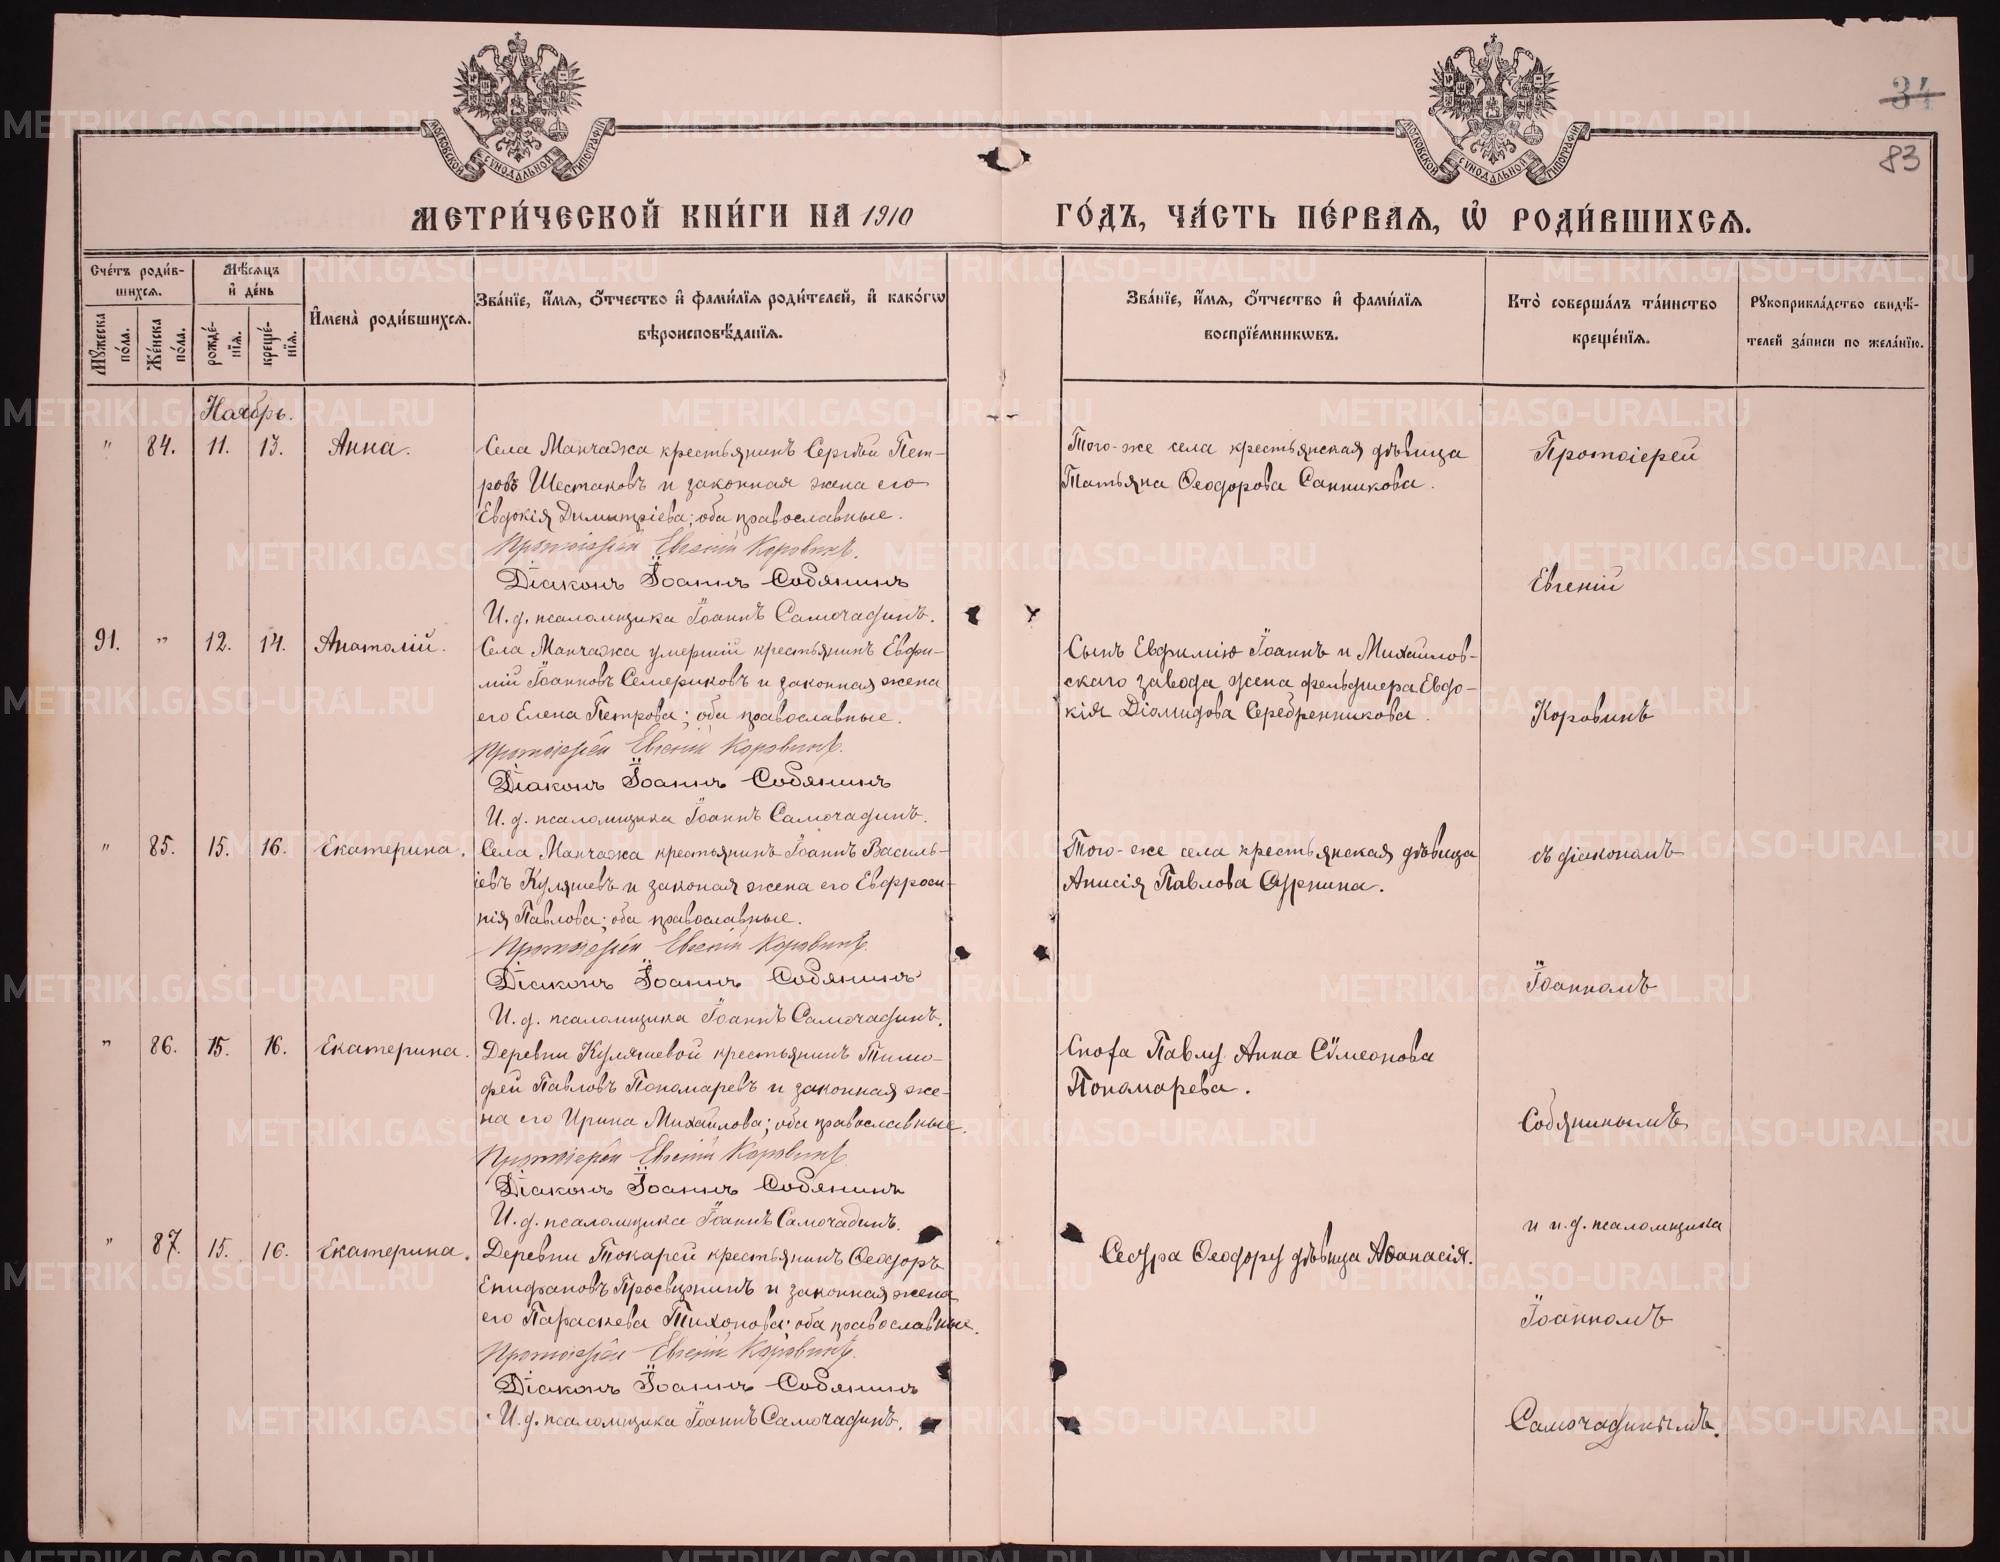 МОСКОВСКОЙ СѴНОДАЛЬНОЙ ТИПОГРАФІИ
МОСКОВСКОЙ СѴНОДАЛЬНОЙ ТИПОГРАФІИ
34
83
МЕТРИ́ЧЕСКОЙ КНИ́ГИ НА 1910
ГО́ДЪ, ЧА́СТЬ ПЕ́РВАѦ, Ѡ҆ РОДИ́ВШИХСѦ.
Сче́тъ роди́в-
шихсѧ.
Мѣ́сѧцъ
и҆ де́нь
Мꙋ́жеска по́ла.
Же́нска по́ла.
рожде́-
нїѧ.
креще́-
нїѧ.
И҆мена̀ роди́вшихсѧ.
Зва́нїе, и҆́мѧ, о҆́тчество и҆ фами́лїѧ роди́телей, и҆ како́гѡ
вѣроисповѣ́данїѧ.
Зва́нїе, и҆́мѧ, о҆́тчество и҆ фами́лїѧ
воспрїе́мникѡвъ.
Кто̀ соверша́лъ та́инство
креще́нїѧ.
Рꙋкоприкла́дство свидѣ́-
телей за́писи по жела́нїю.
Ноябрь.
" 84. 11. 13. Анна.
Села Манчажа крестьянинъ Сергѣй Пет-
ровъ Шестаковъ и законная жена его
Евдокія Димитріева; оба православные.
Протоіерей Евгеній Коровинъ.
Діаконъ Іоаннъ Собянинъ
И. д. псаломщика Іоаннъ Самочадинъ.
Того-же села крестьянская дѣвица
Татьяна Ѳеодорова Санникова.
Протоіерей
Евгеній
91. " 12. 14. Анатолій.
Села Манчажа умершій крестьянинъ Евфи-
мій Іоанновъ Семериковъ и законная жена
его Елена Петрова; оба православные.
Протоіерей Евгеній Коровинъ.
Діаконъ Іоаннъ Собянинъ
И. д. псаломщика Іоаннъ Самочадинъ.
Сынъ Евфимію Іоаннъ и Михайлов-
скаго завода жена фельдшера Евдо-
кія Діомидова Серебренникова.
Коровинъ
" 85. 15. 16. Екатерина.
Села Манчажа крестьянинъ Іоаннъ Василь-
іевъ Куляшевъ и законая жена его Евфроси-
нія Павлова; оба православные.
Протоіерей Евгеній Коровинъ.
Діаконъ Іоаннъ Собянинъ
И. д. псаломщика Іоаннъ Самочадинъ.
Того-же села крестьянская дѣвица
Анисія Павлова
съ діакономъ
Іоанномъ
" 86. 15. 16. Екатерина.
Деревни Куляшевой крестьянинъ Тимо-
фей Павловъ Пономаревъ и законная же-
на его Ирина Михайлова; оба православные.
Протоіерей Евгеній Коровинъ
Діаконъ Іоаннъ Собянинъ
И. д. псаломщика Іоаннъ Самочадинъ.
Сноха Павлу Анна Сѵмеонова
Пономарева.
Собянинымъ
и и. д. псаломщика
" 87. 15. 16. Екатерина.
Деревни Токарей крестьянинъ Ѳеодоръ
Епифановъ Просвирнинъ и законная жена
его Параскева Тихонова; оба православные.
Протоіерей Евгеній Коровинъ.
Діаконъ Іоаннъ Собянинъ
И. д. псаломщика Іоаннъ Самочадинъ.
Сестра Ѳеодору дѣвица Аѳанасія.
Іоанномъ
Самочадинымъ.
METRIKI.GASO-URAL.RU